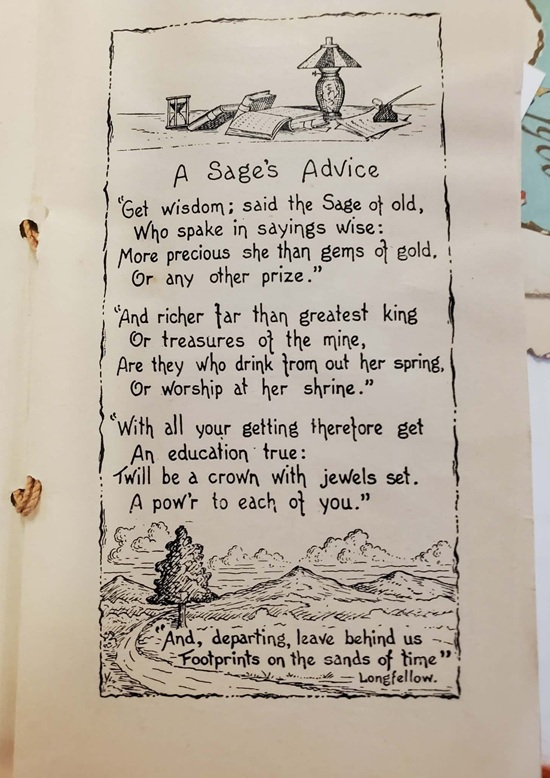 A Sage's Advice
"Get wisdom; said the Sage of old,
Who spake in sayings wise:
More precious she than gems of gold,
Or any other prize."
"And richer far than greatest king
Or treasures of the mine,
Are they who drink from out her spring,
Or worship at her shrine."
"With all your getting therefore get
An education true:
Twill be a crown with jewels set.
A pow'r to each of you."
"And, departing, leave behind us
Footprints on the sands of time"
Longfellow.